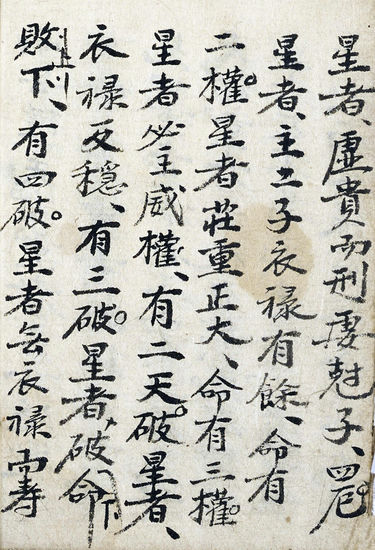 星者、虛貴而刑妻尅子、四厄
星者、主子衣禄有餘、命有
二權。星者荘重正大、命有三權。
星者必主威權、有二天破。星者、
衣禄反穏、有三破。星者、破命
敗下、有四破。星者無衣禄而壽